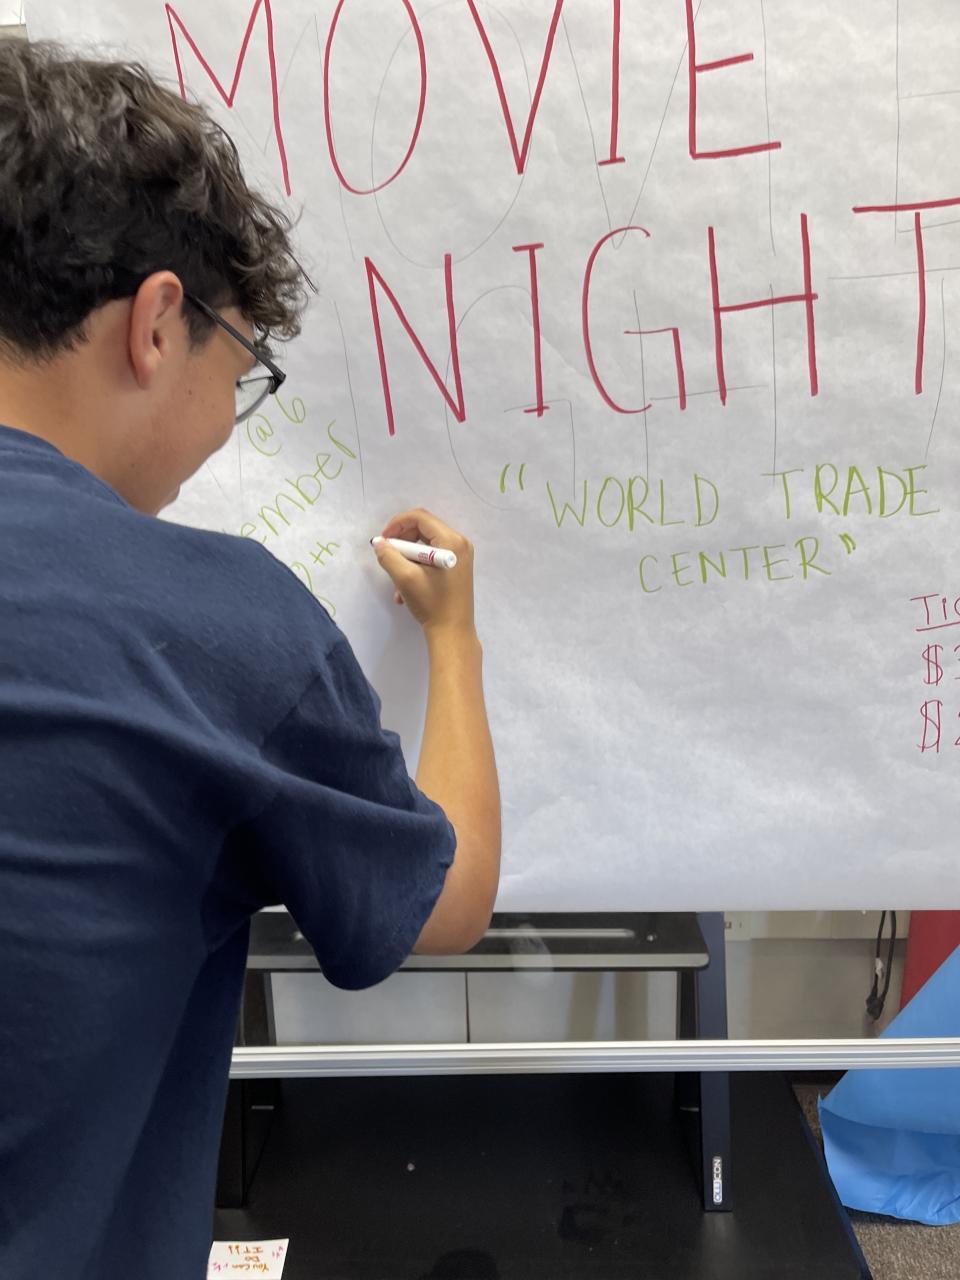 MOVIE
NIGHT
@6
ember
th
"WORLD TRADE
CENTER"
TIC
$3
$2
You can
DO
IT!!